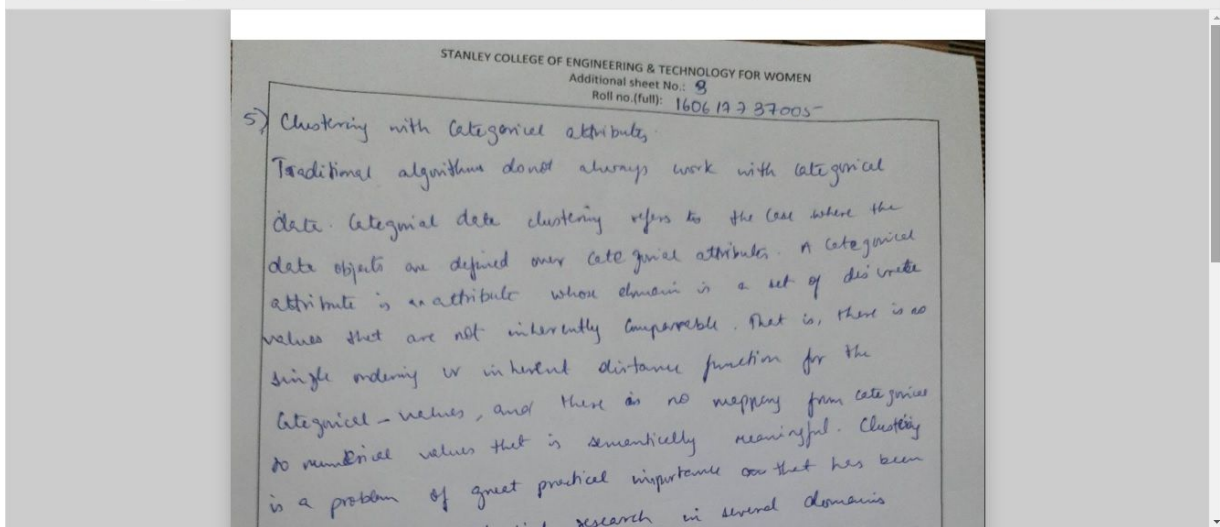 STANLEY COLLEGE OF ENGINEERING & TECHNOLOGY FOR WOMEN
Additional sheet No.: 8
Roll no.(full): 160617737005
5) Clustering with Categorical attributes
Traditional algorithms donot always work with categorical
data. Categorial data clustering refers to the case where the
data objects are defined over categorial attributes. A categorical
attribute is an attribute whose domain is a set of discrete
values that are not inherently comparable. That is, there is no
single ordering or inherent distance function for the
Categorical - values, and there is no mapping from categorical
to numerical values that is semantically meaningful. Clustering
is a problem of great practical importance that has been
research in several domains